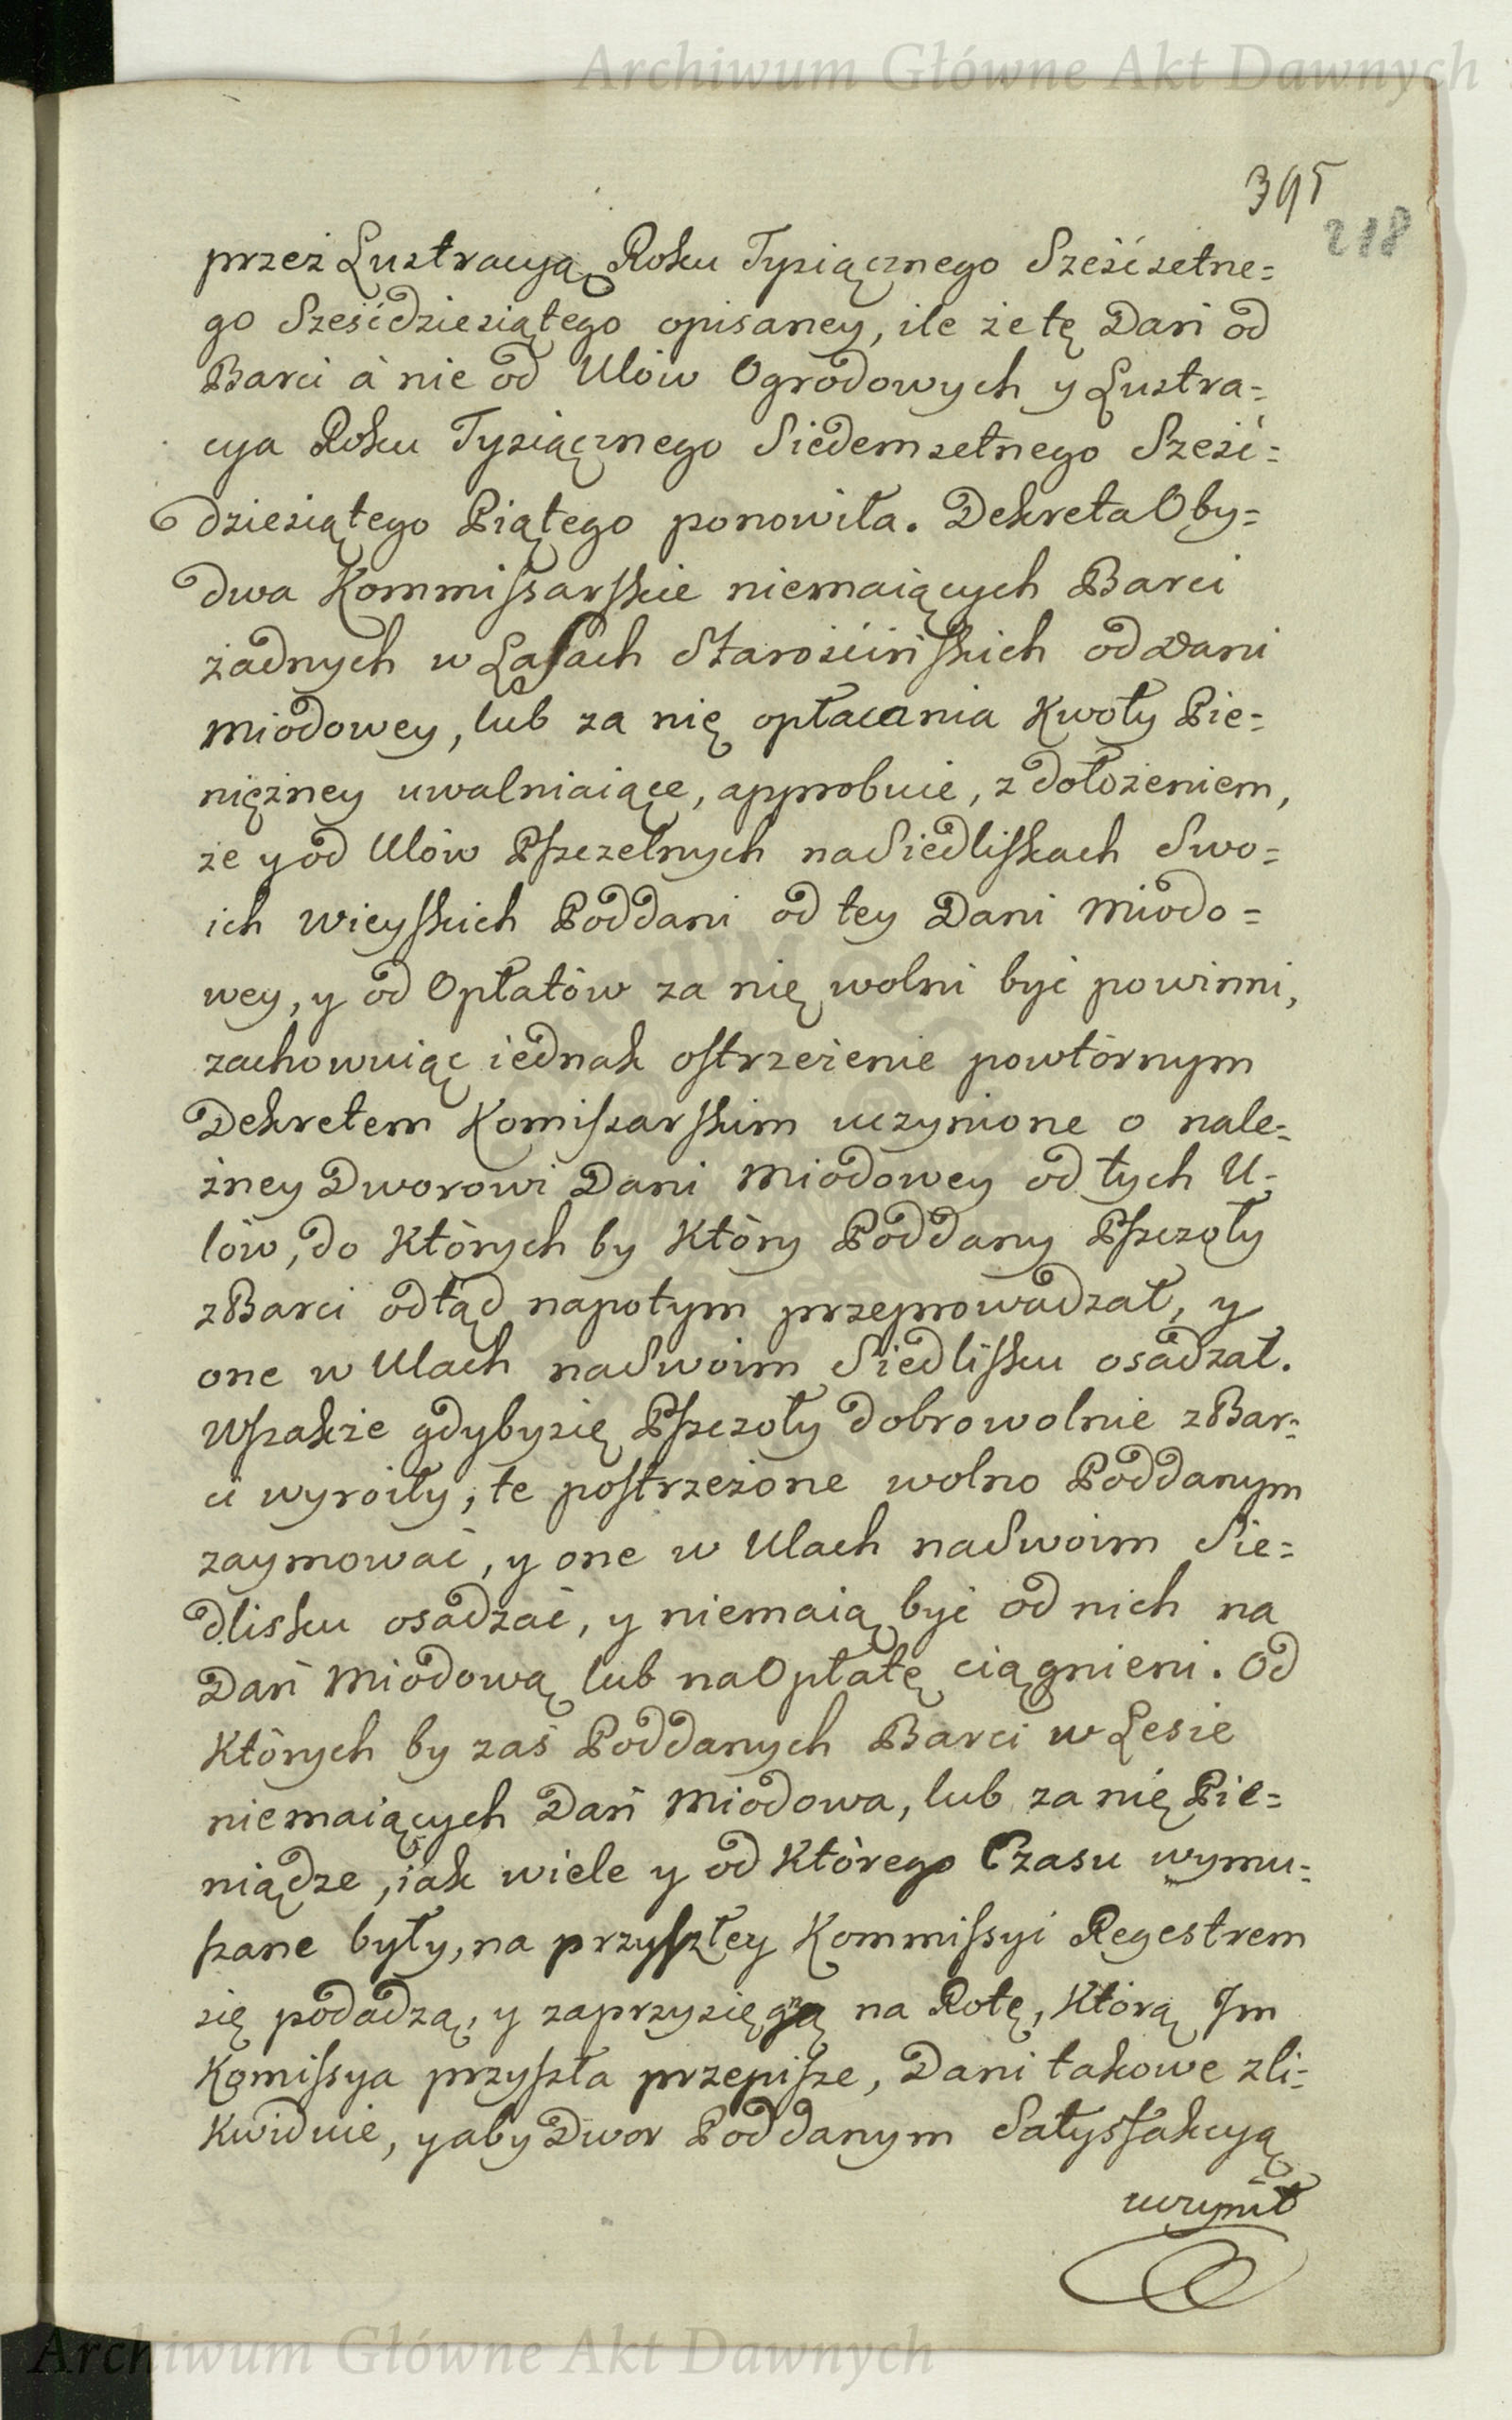 Archiwum Główne Akt Dawnych
395
218
przez Lustracyą Roku Tysiącznego Sześćsetne=
go Sześćdziesiątego opisaney, ile że tę Dań od
Barci à nie od Ulów Ogrodowych y Lustra=
cya Roku Tysiącznego Siedemsetnego Sześć=
dziesiątego Piątego ponowiła. Dekreta Oby=
dwa Kommissarskie niemaiących Barci
żadnych w Lasach Starościńskich od dani
Miodowey, lub za nię opłacania Kwoty Pie=
niężney uwalniaiące, approbuie, z dołożeniem,
że y od Ulów Pszczelnych na Siedliskach Swo=
ich wieyskich Poddani od tey Dani Miodo=
wey, y od Opłatów za nię wolni być powinni,
zachowuiąc iednak ostrzeżenie powtórnym
Dekretem Komissarskim uczynione o nale=
żney Dworowi Dani Miodowey od tych U=
lów, do Których by Który Poddany Pszczoły
z Barci odtąd napotym przeprowadzał, y
one w Ulach na Swoim Siedlisku osadzał.
Wszakże gdyby się Pszczoły dobrowolnie z Bar=
ci wyroiły, te postrzeżone wolno Poddanym
zaymować, y one w Ulach na Swoim Sie=
dlisku osadzać, y niemaią być od nich na
Dań Miodową lub na Opłatę ciągnieni. Od
Których by zaś Poddanych Barci w Lesie
niemaiących Dań Miodowa, lub za nię Pie=
niądze, iak wiele y od Którego Czasu wymu=
szane były, na przyszłey Kommissyi Regestrem
się podadzą, y zaprzysięgą na Rotę, Którą Im
Komissya przyszła przepisze, Dani takowe zli=
kwiduie, y aby Dwor Poddanym Satysfakcyą
uczynił
Archiwum Główne Akt Dawnych